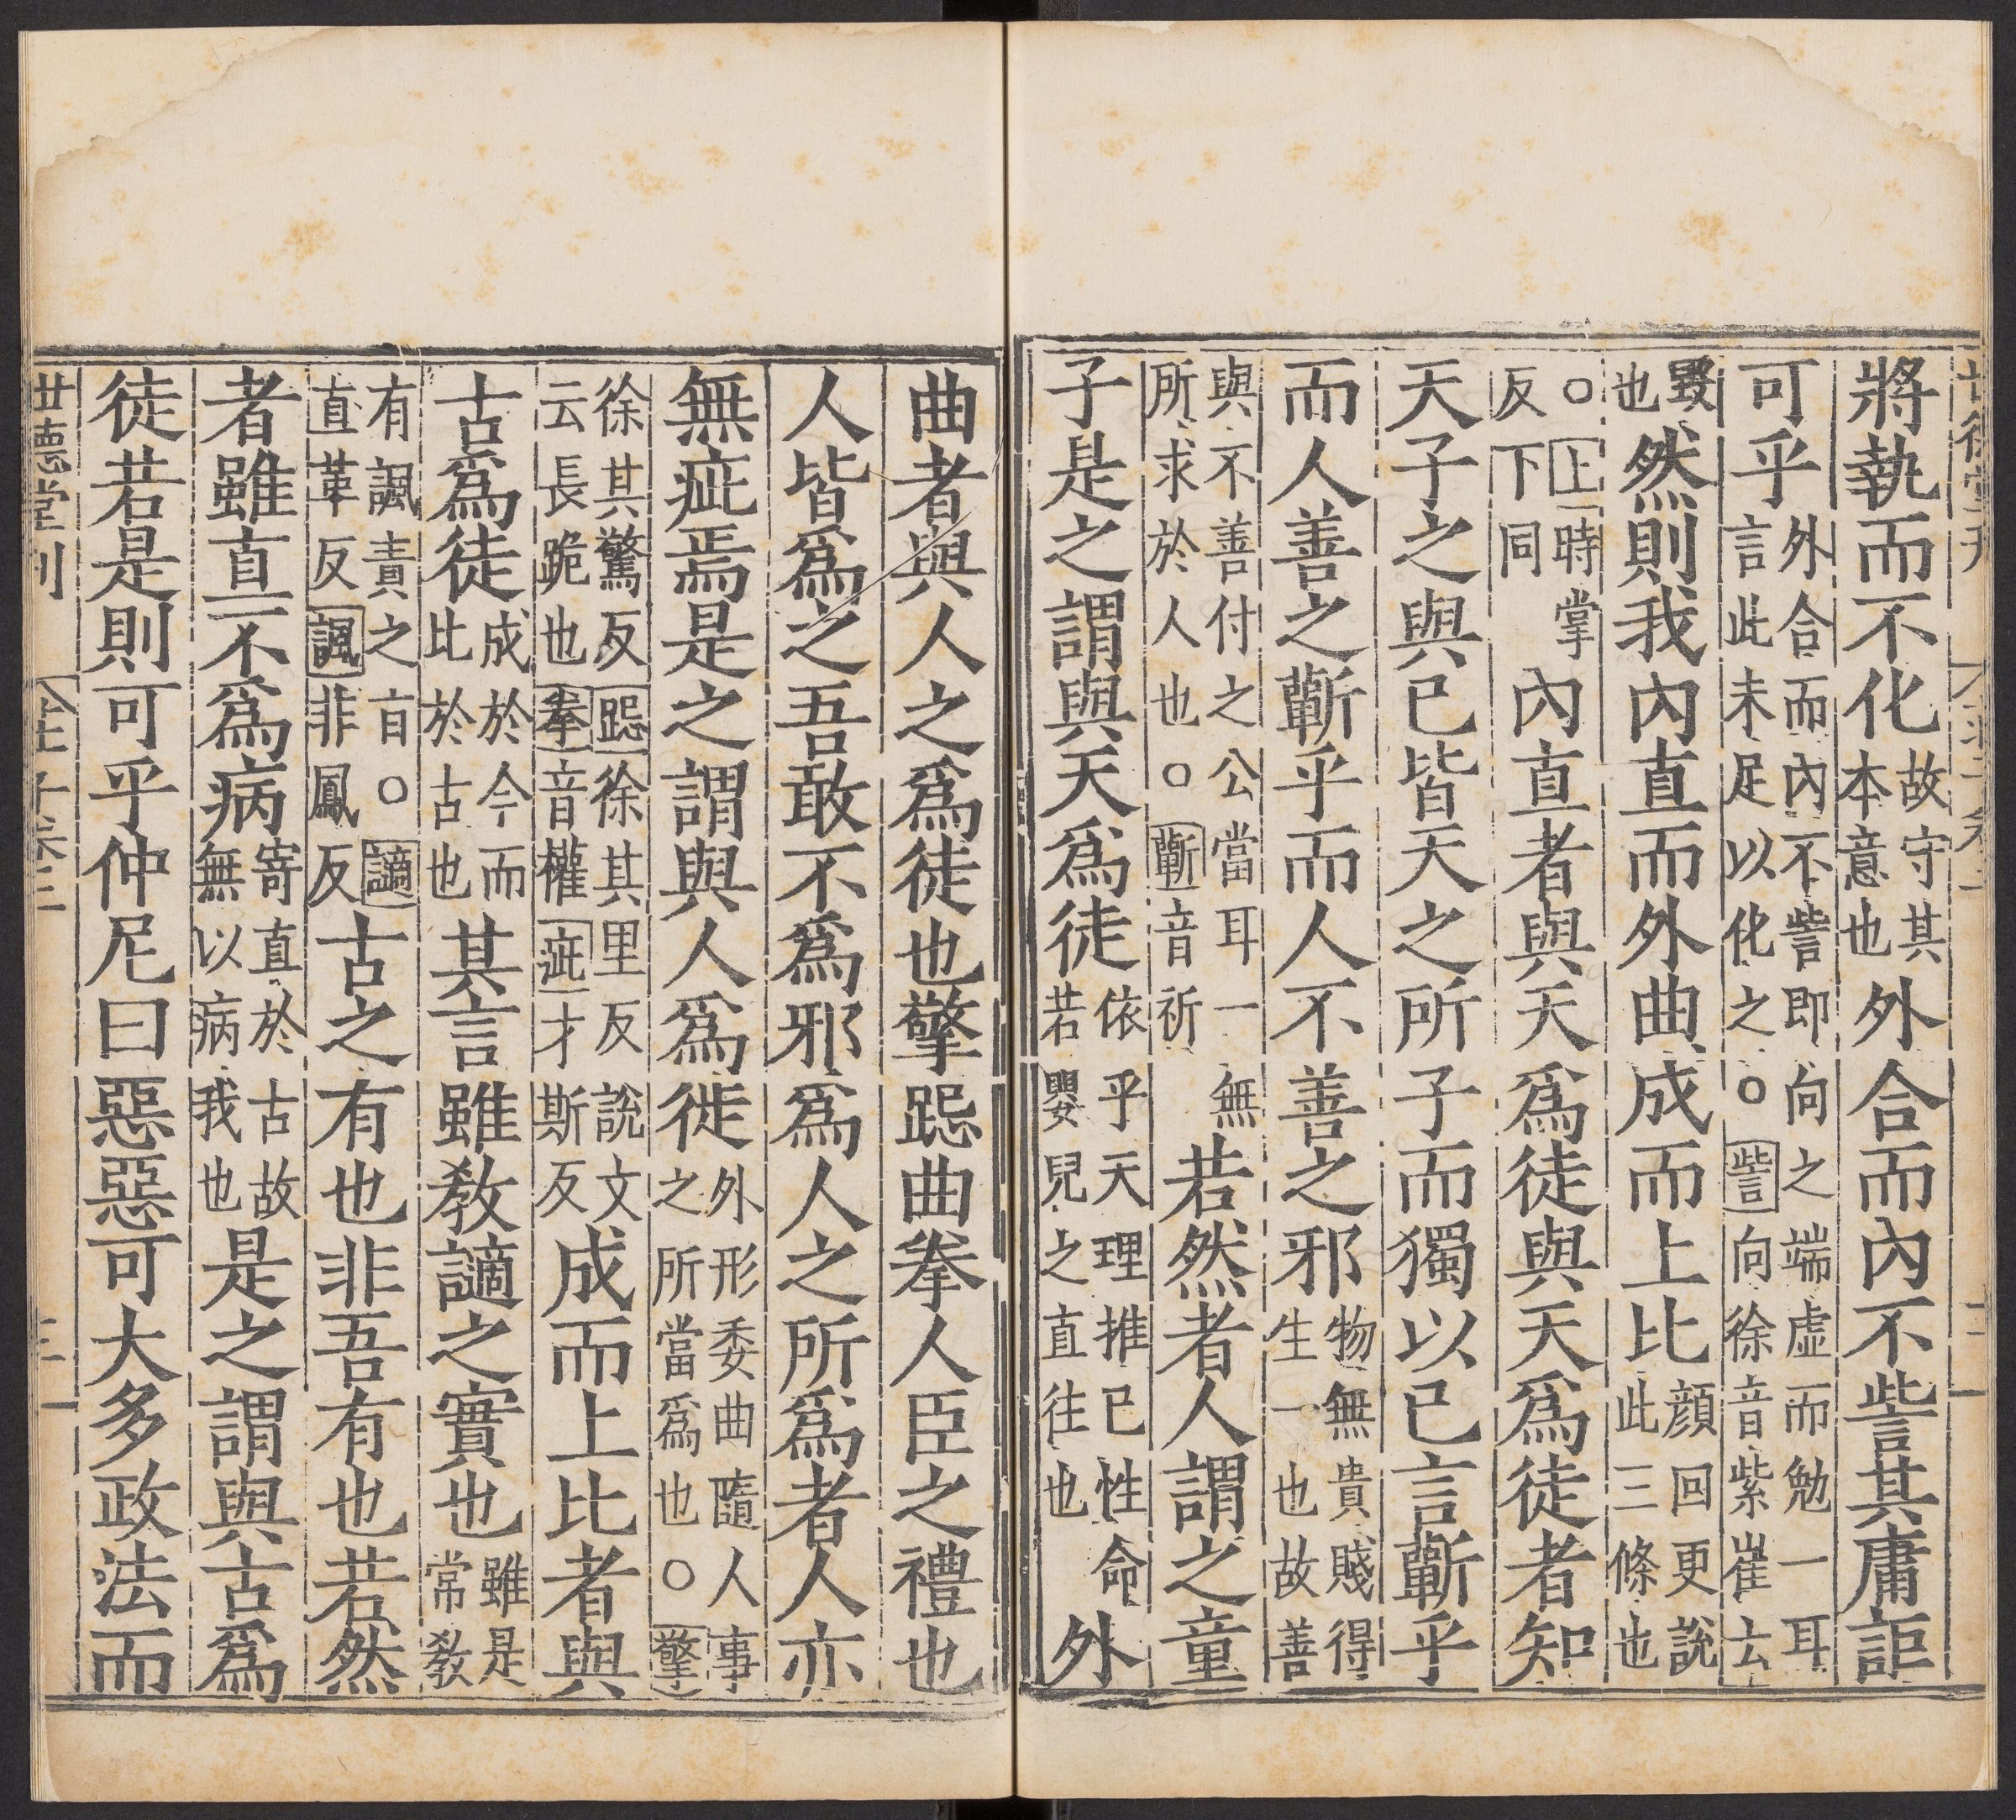 將執而不化故守其本意也外合而內不訾其庸詎
可乎外合而內不訾卽向之端虛而勉一耳言此未足以化之○訾向徐音紫崔云
毀也然則我內直而外曲成而上比顏回更說此三條也
○上時掌反下同內直者與天爲徒與天爲徒者知
天子之與已皆天之所子而獨以已言蘄乎
而人善之蘄乎而人不善之邪物無貴賤得生一也故善
與不善付之公當耳一無所求於人也○蘄音祈若然者人謂之童
子是之謂與天爲徒依乎天理推已性命若嬰兒之直往也外
曲者與人之爲徒也擎跽曲拳人臣之禮也
人皆爲之吾敢不爲邪爲人之所爲者人亦
無疵焉是之謂與人爲徙外形委曲隨人事之所當爲也○擎
徐其驚反跽徐其里反說文云長跪也拳音權疵才斯反成而上比者與
古爲徒成於今而比於古也其言雖敎讁之實也雖是常敎
有諷責之盲○讁直革反諷非鳳反古之有也非吾有也若然
者雖直不爲病寄直於古故無以病我也是之謂與古爲
徒若是則可乎仲尼曰惡惡可大多政法而
世德堂刊